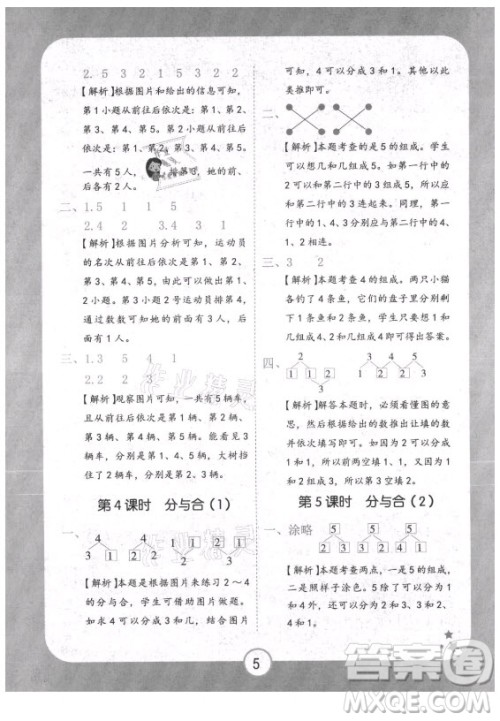 2. 5 1 5 3 2 1 5 2 2
【解析】根据图片和给出的信息可知，
第1小题从前往后依次是：第1、第2、
第3、第4、第5。第2小题从前往后依
次是：第1、第2、第3、第4、第5。
一共有5人，
后各有2人。
二、1. 5 1 1 5
2. 4 3 1 3. 4 3 1
【解析】根据图片分析可知，运动员
的名次从前往后依次是：第1、第2、
第3、第4、第5。可以据此来做第1、
第2小题。第3小题2号运动员排第4。
通过数数可知他的前面有3人，后面
有1人。
三、1. 3 5 4 1
2. 2 2 3
【解析】观察图片可知，一共有5辆车，
且从前往后依次是第1辆、第2辆、
第3辆、第4辆、第5辆。能看见3辆
车，分别是第1、4、5辆。大树挡了
2辆车，分别是第2、3辆。
第4课时 分与合（1）
一、
4 2 1 1 2 1 2
3 1 1 1 2 3 3
【解析】本题是根据图片来练习2～4
的分与合，学生可借助图片做题。
如第1小题，4可以分成3和1。图片
可知，4可以分成3和1，其他以此
类推即可。
二、
【解析】本题考查的是5的组成。学生
可以想几和几组成5。如第一行中的
3可以和第二行中的2组成5，所以3
与2连起来。同理，第一行中的2、
4、1、3，分别应与第二行中的3、
1、4、2相连。
三、3 2
【解析】本题考查4的组成。两只小猫
各钓了4条鱼。它们的盘子里分别有
1条鱼和2条鱼，想1和3组成4，2
和2组成4即可得出答案。
四、
2 3 3 2
1 1 2 1 2 1 1
【解析】解答本题时，必须看懂图的
意思，然后根据给出的数推出要填写
的数。2可以分成1和1，3可以分成2
和1。所以前两空填1、1，后两空
填2、1。
第5课时 分与合（2）
一、涂略 5 5 5
3 2 4 1 2 3
【解析】本题考查两点，一是5的组成，
二是照样子涂色。5除了可以分成3
和2，还可以分成4和1、2和3、1和
4。
5
答案圈
MXQE.COM